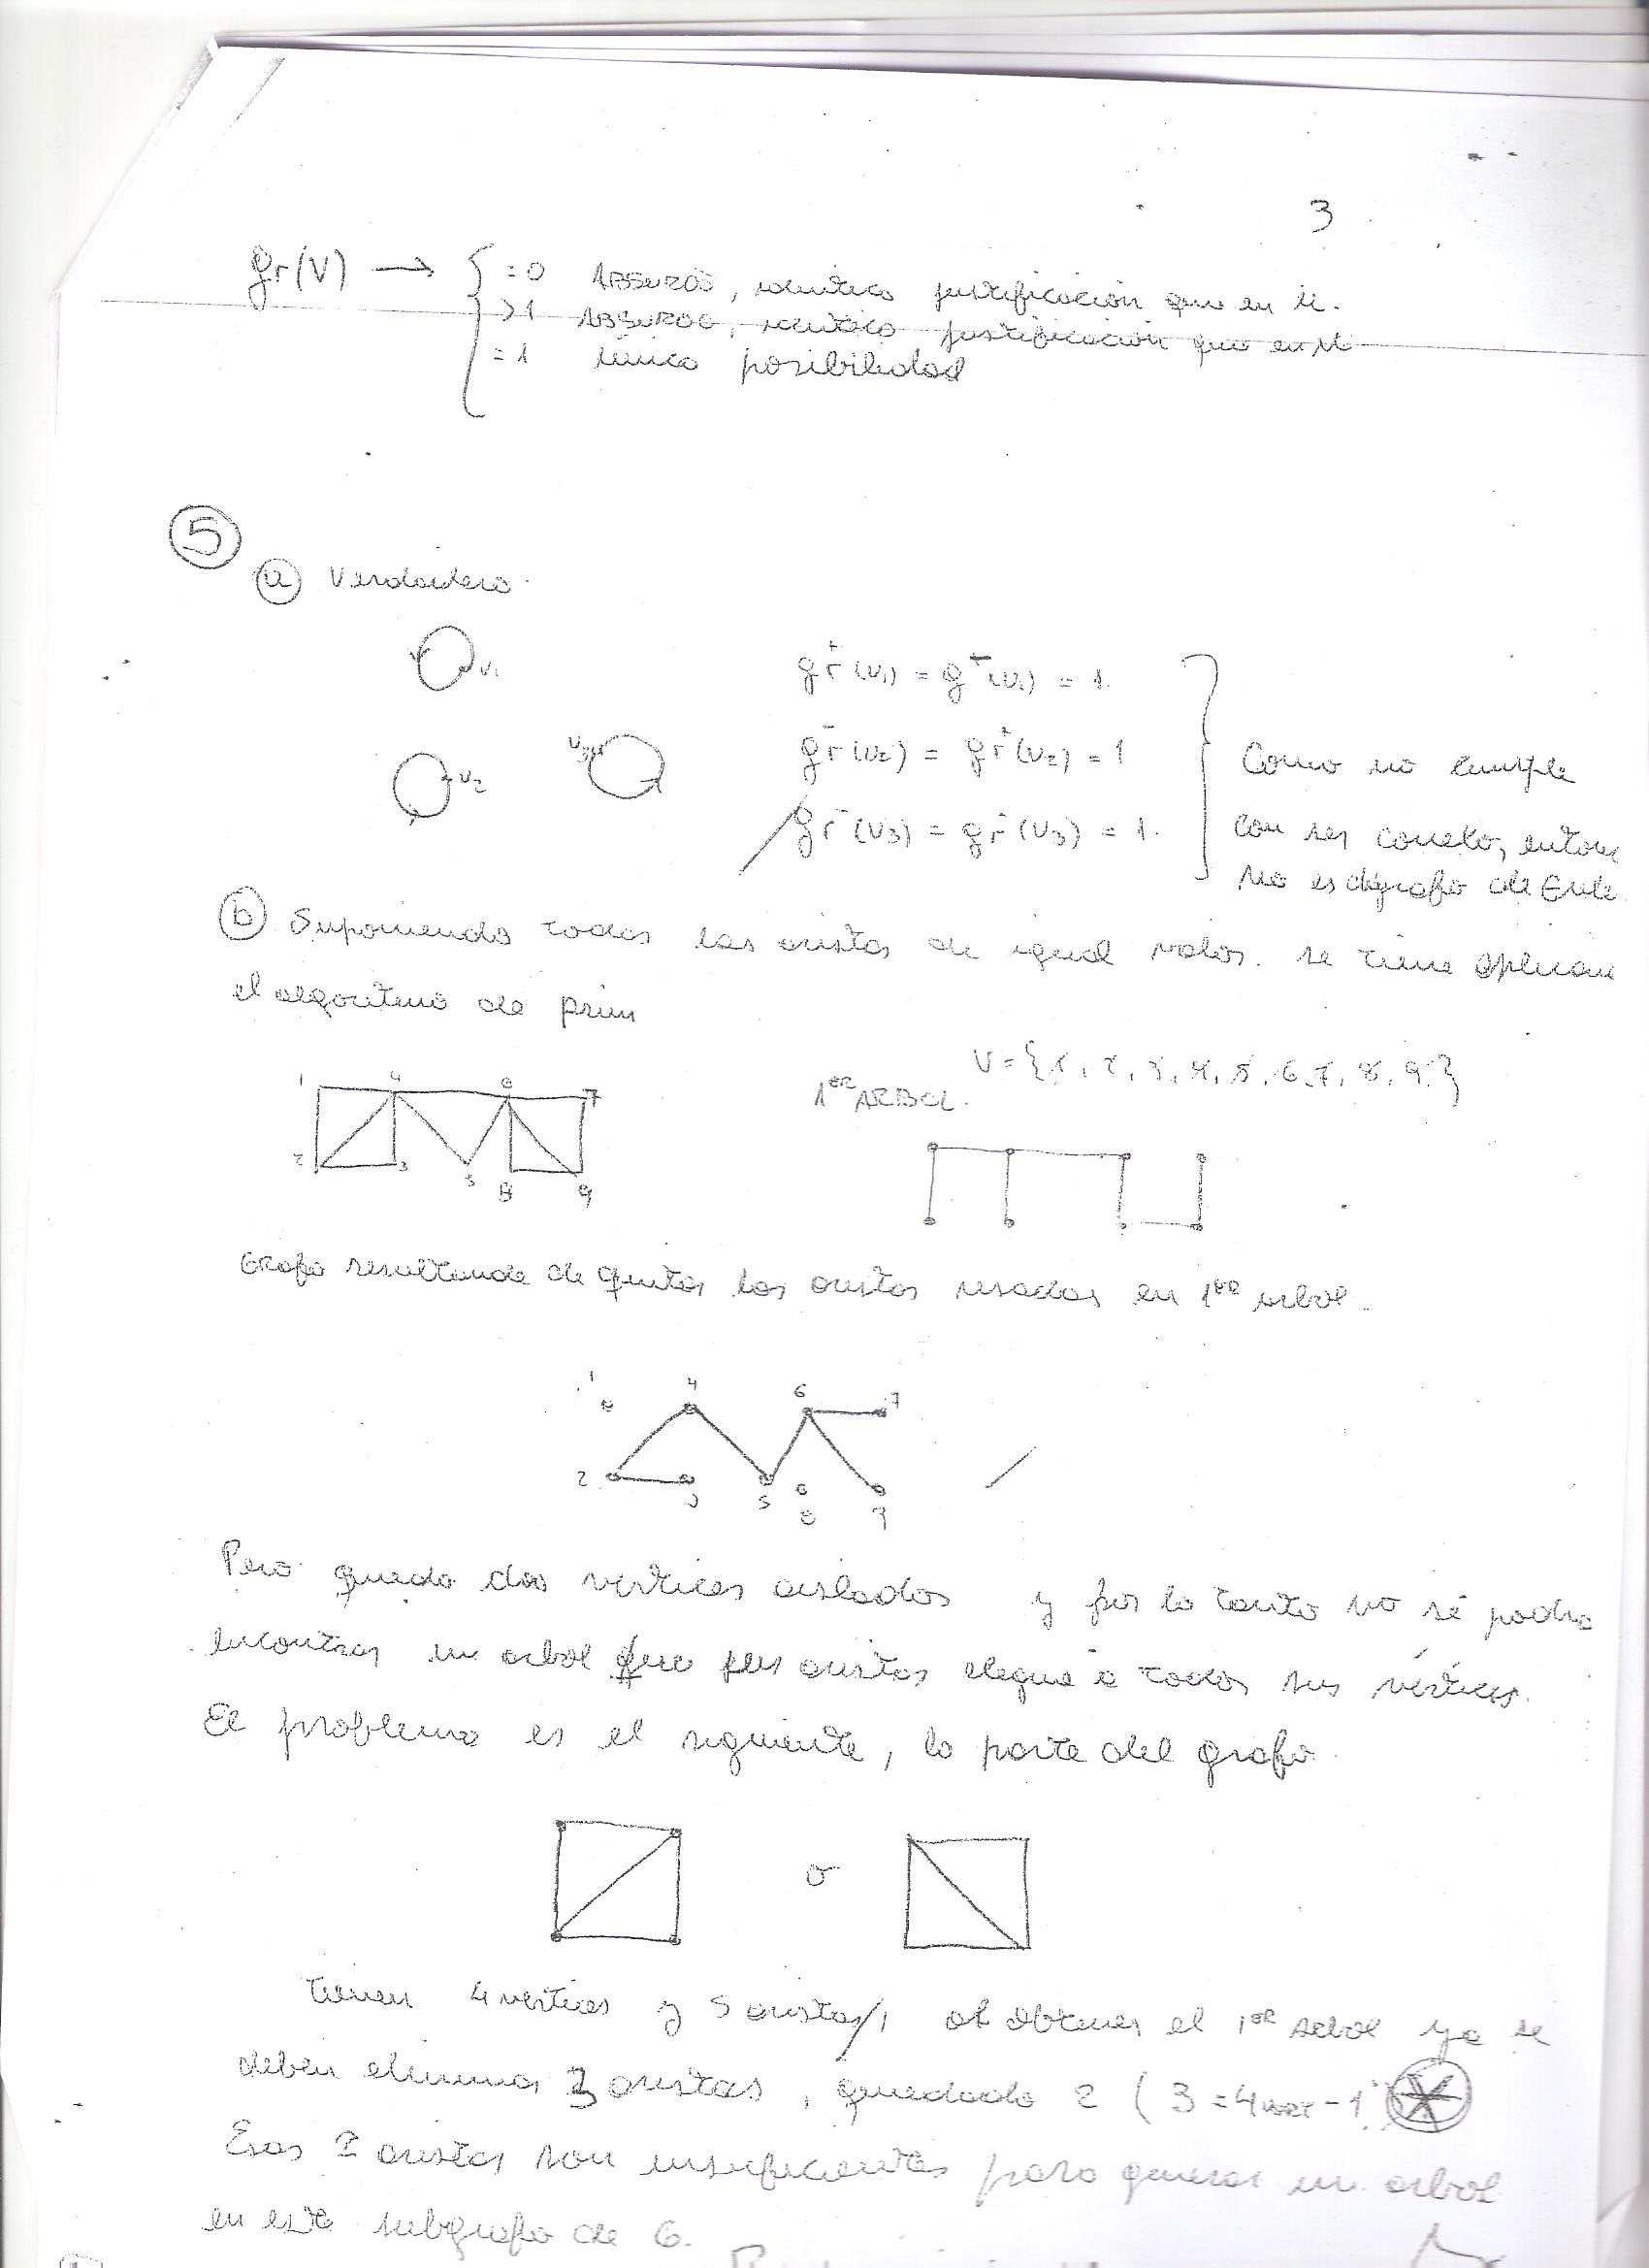 3
gr(V) → { = 0 ABSURDO, identica justificación que en ii.
>1 ABSURDO, identica justificación que en ii
= 1 única posibilidad
5
a Verdadero.
V1 gr+(v1) = g-(v1) = 1.
V2 V3 gr-(v2) = gr+(v2) = 1 Como no cumple
gr-(v3) = gr+(v3) = 1. con ser conexo, entonc
no es digrafo de Eule
b Suponiendo todas las aristas de igual valor. se tiene aplican
el algoritmo de prim
V = {1, 2, 3, 4, 5, 6, 7, 8, 9}
1ER ARBOL.
1 4 6 7
2 3 5 8 9
Grafo resultande de quitar las aristas usadas en 1ER arbol.
1 4 6 7
2 3 5 8 9
Pero queda dos vertices aislados y por lo tanto no se podra
encontrar un arbol que sus aristas llegue a todos sus vértices.
El problema es el siguiente, la parte del grafo.
o
tienen 4 vertices y 5 aristas, al obtener el 1ER arbol ya se
deben eliminar 3 aristas, quedado 2 (3 = 4 vert - 1)
Esas 2 aristas son insuficientes para generar un arbol
en este subgrafo de G.